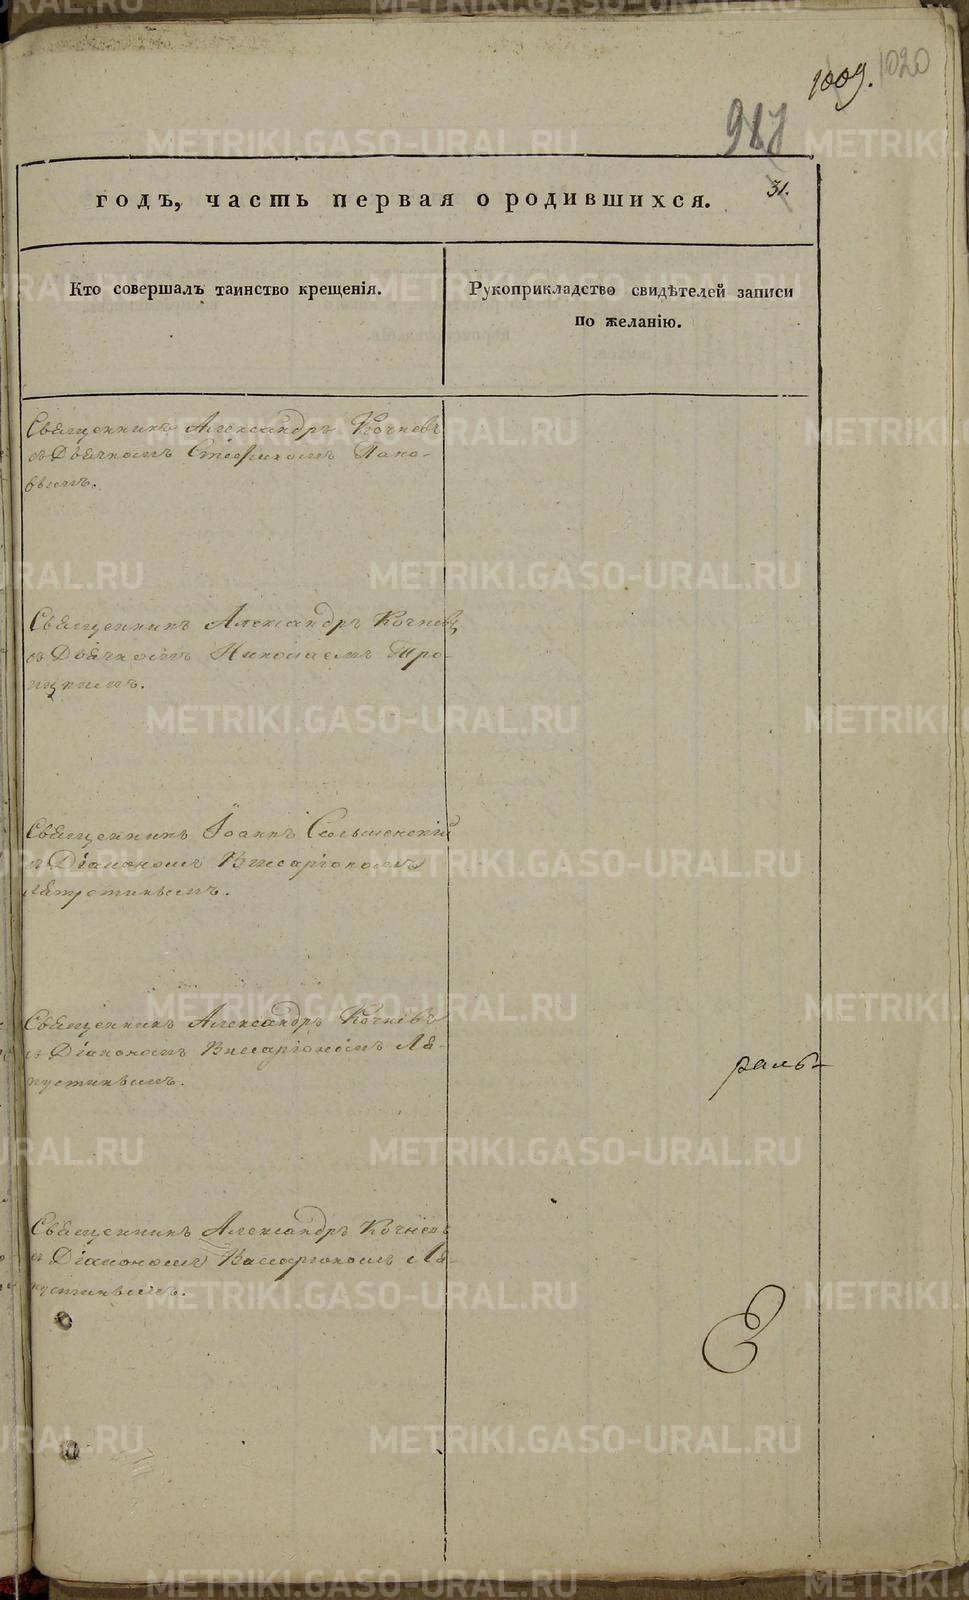 1009. 1020
31.
годъ, часть первая о родившихся.
Кто совершалъ таинство крещенія.
Рукоприкладство свидѣтелей записи
по желанію.
Священникъ Александръ Кочневъ
съ Дьячкомъ Стефаномъ Папо-
вымъ.
Священникъ Александръ Кочневъ
съ Дьячкомъ Николаемъ Тро-
ицкимъ.
Священникъ Іоаннъ
съ Діакономъ Висаріономъ
Священникъ Александръ Кочневъ
съ Діакономъ Висаріономъ Ла-
пустинымъ.
раль
Священникъ Александръ Кочневъ
съ Діакономъ Васаріономъ Ла-
пустинымъ.
METRIKI.GASO-URAL.RU